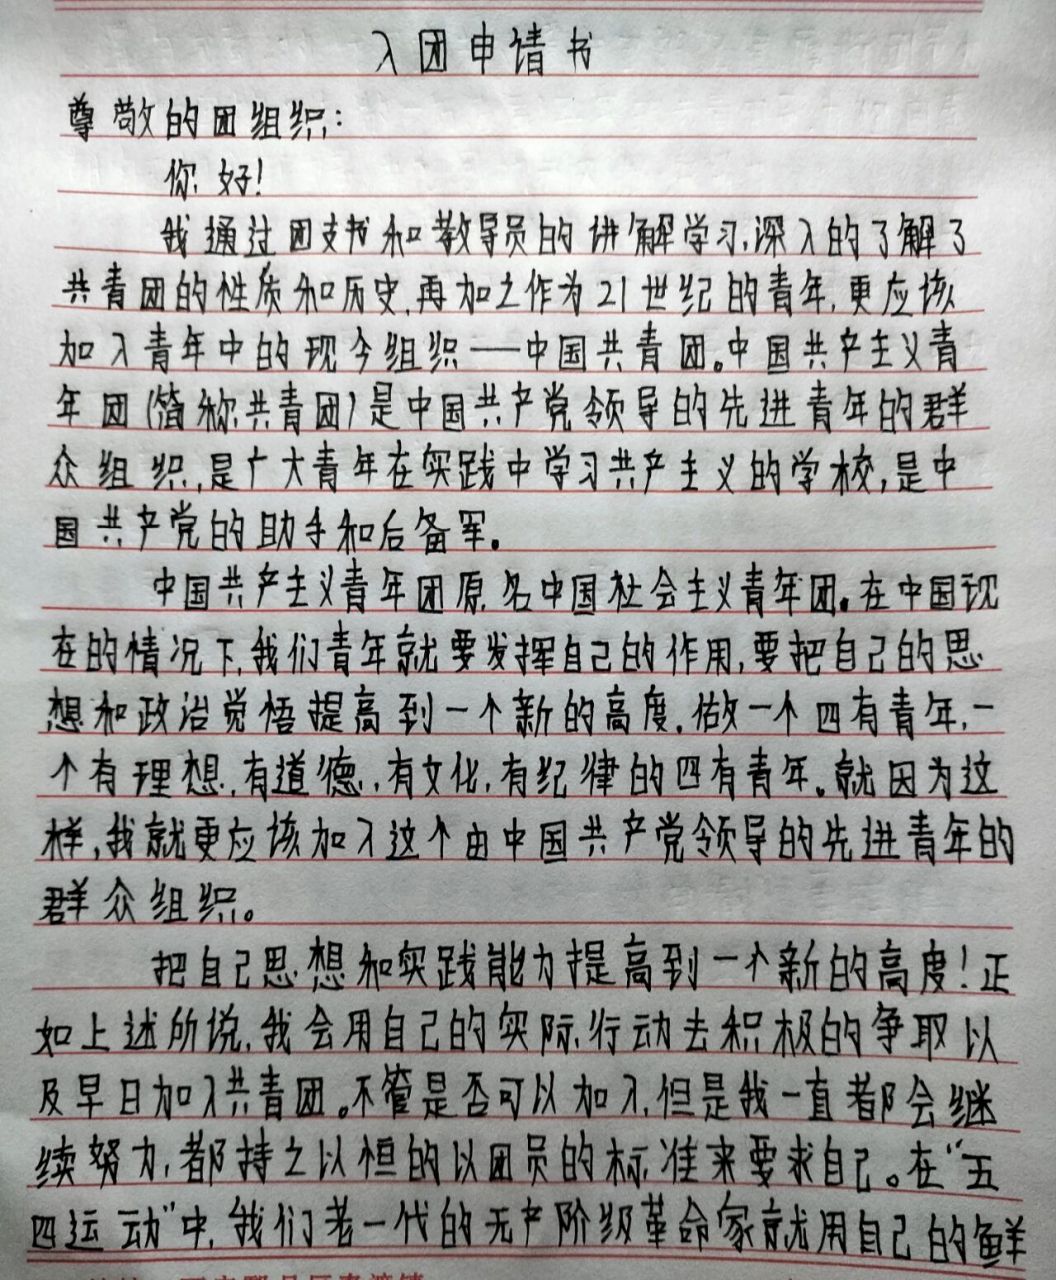 入团申请书
尊敬的团组织：
你好！
我通过团支书和教导员的讲解学习，深入的了解了
共青团的性质和历史，再加之作为21世纪的青年，更应该
加入青年中的现今组织——中国共青团。中国共产主义青
年团（简称共青团）是中国共产党领导的先进青年的群
众组织，是广大青年在实践中学习共产主义的学校，是中
国共产党的助手和后备军。
中国共产主义青年团原名中国社会主义青年团。在中国现
在的情况下，我们青年就要发挥自己的作用，要把自己的思
想和政治觉悟提高到一个新的高度，做一个四有青年，一
个有理想，有道德，有文化，有纪律的四有青年。就因为这
样，我就更应该加入这个由中国共产党领导的先进青年的
群众组织。
把自己思想和实践能力提高到一个新的高度！正
如上述所说，我会用自己的实际行动去积极的争取以
及早日加入共青团。不管是否可以加入，但是我一直都会继
续努力，都持之以恒的以团员的标准来要求自己。在“五
四运动”中，我们老一代的无产阶级革命家就用自己的鲜